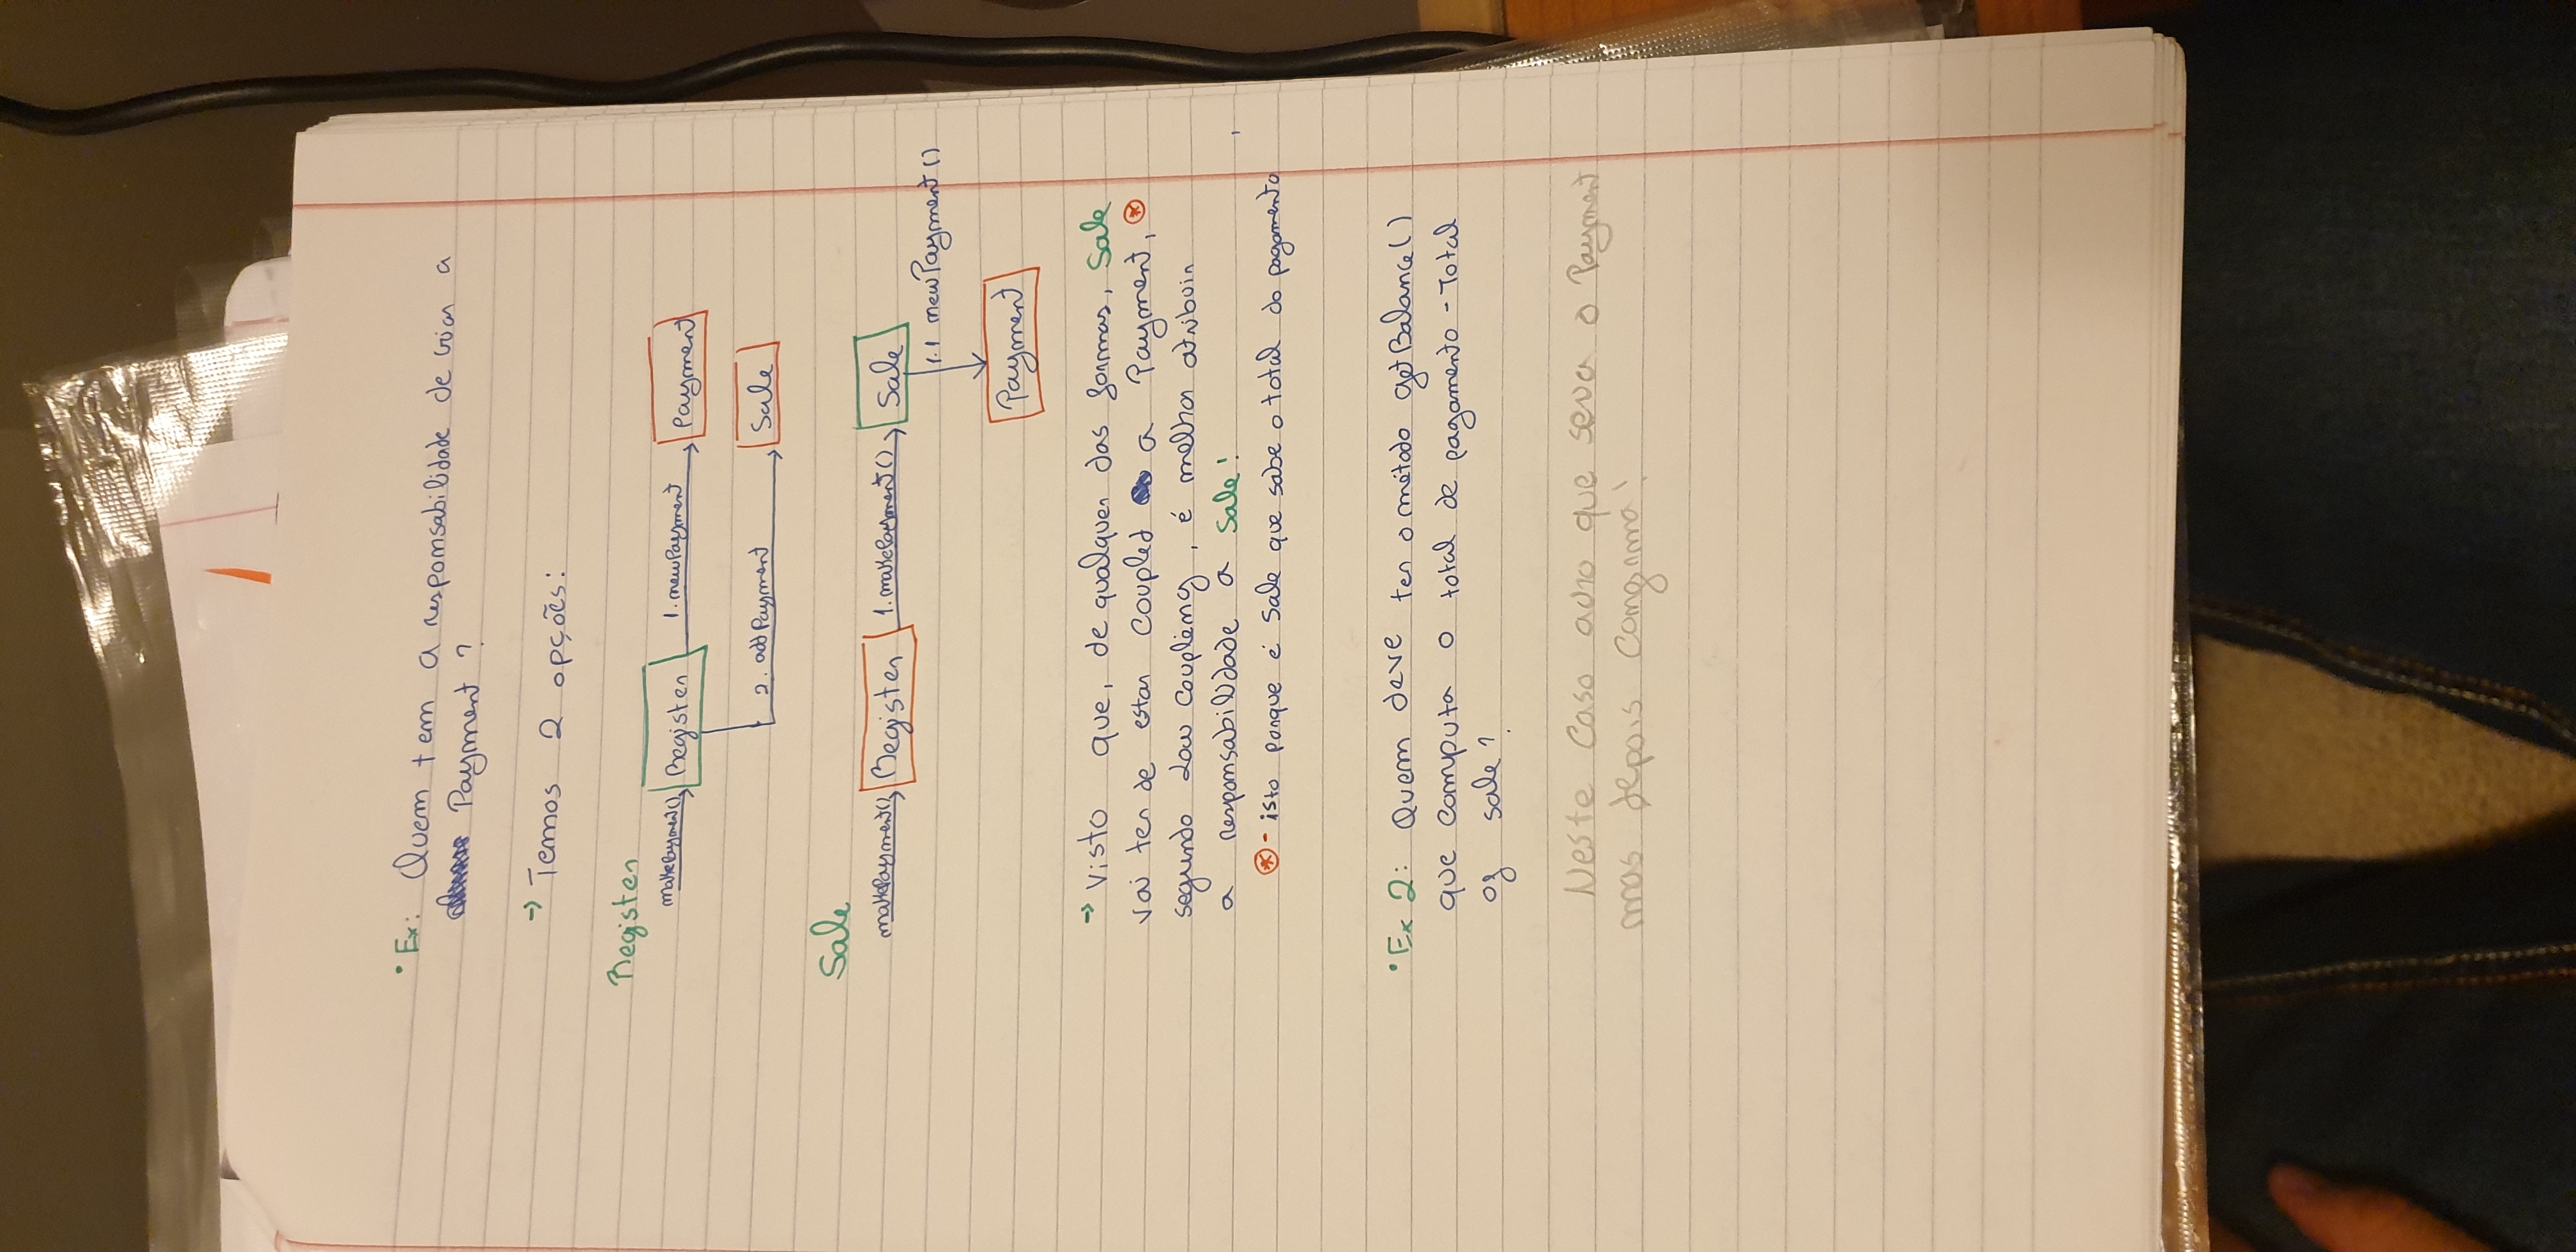 • Ex: Quem tem a responsabilidade de criar a
Payment ?
→ Temos 2 opções:
Register
makePayment() Register 1. newPayment Payment
2. addPayment Sale
Sale
makePayment() Register 1. makePayment() Sale
1.1 newPayment()
Payment
→ Visto que, de qualquer das formas, Sale
vai ter de estar coupled a Payment, *
segundo Low Coupling, é melhor atribuir
a responsabilidade a Sale!
* - isto porque é Sale que sabe o total do pagamento
• Ex 2: Quem deve ter o método getBalance()
que computa o total de pagamento - Total
of sale?
Neste caso acho que seria o Payment
mas depois confirma!